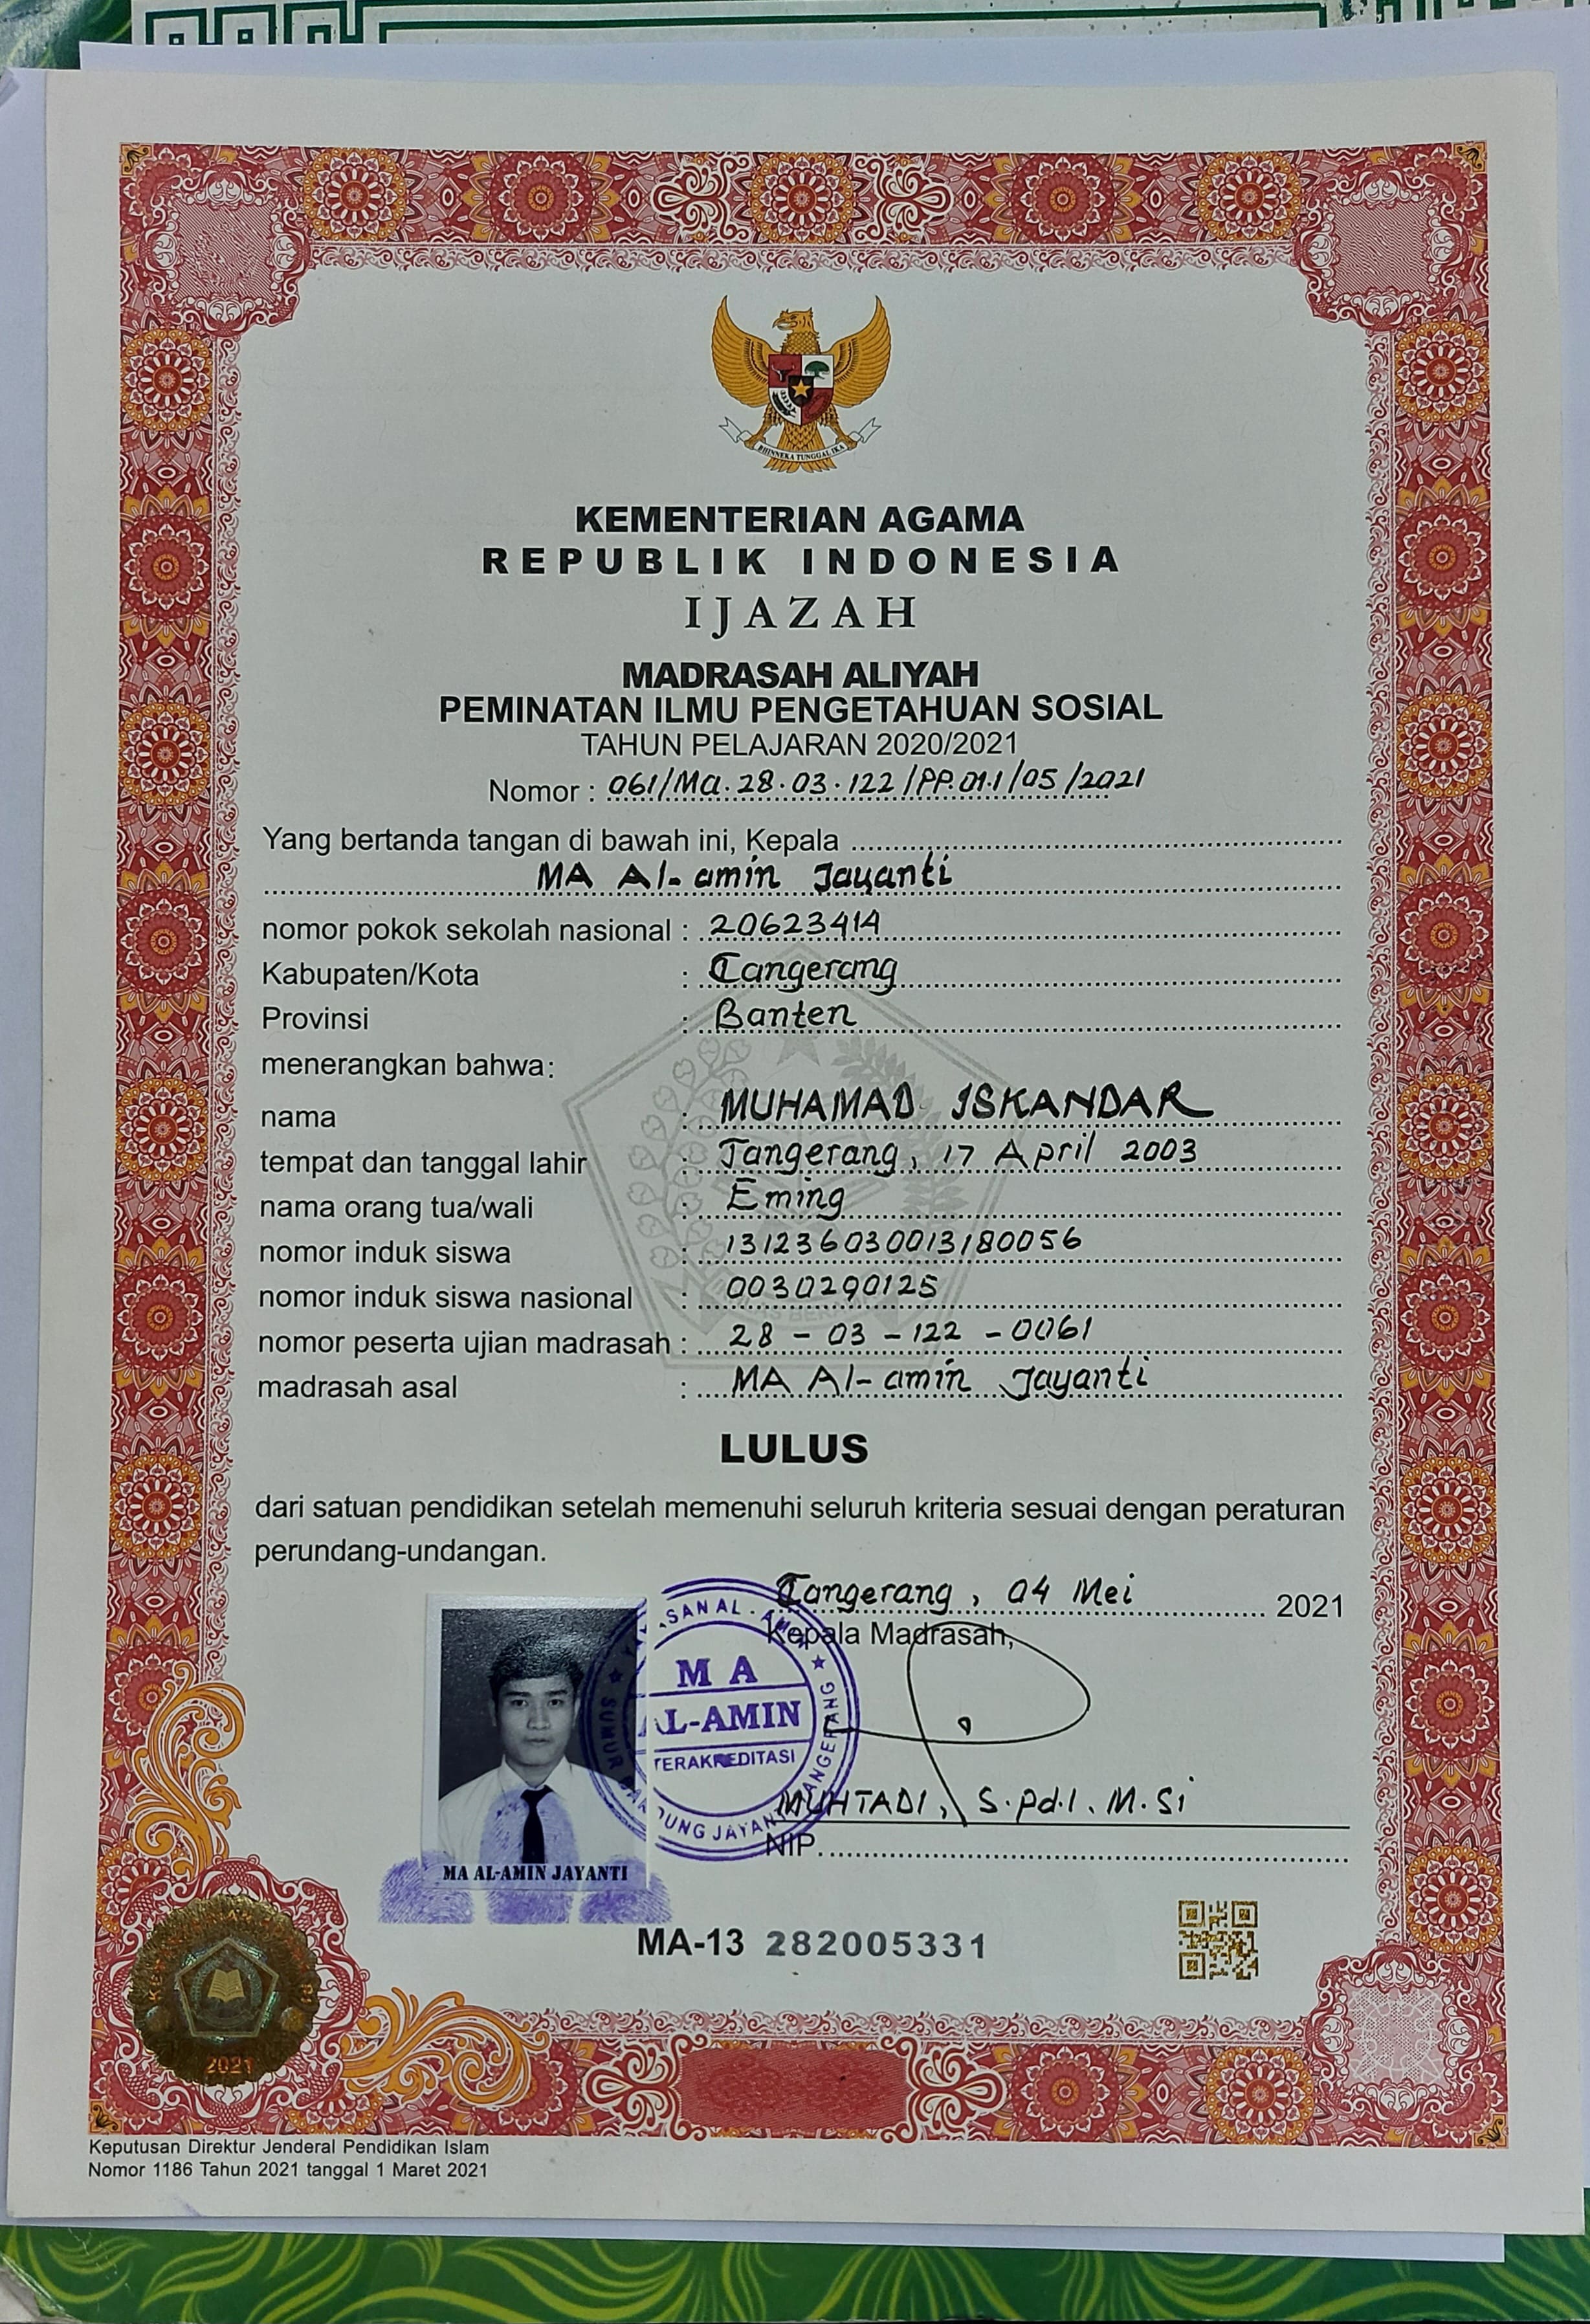 BHINNEKA TUNGGAL IKA
KEMENTERIAN AGAMA
REPUBLIK INDONESIA
IJAZAH
MADRASAH ALIYAH
PEMINATAN ILMU PENGETAHUAN SOSIAL
TAHUN PELAJARAN 2020/2021
Nomor : 061/Ma.28.03.122/PP.01.1/05/2021
Yang bertanda tangan di bawah ini, Kepala
MA Al-amin Jayanti
nomor pokok sekolah nasional : 20623414
Kabupaten/Kota : Tangerang
Provinsi : Banten
menerangkan bahwa:
nama : MUHAMAD ISKANDAR
tempat dan tanggal lahir : Tangerang, 17 April 2003
nama orang tua/wali : Eming
nomor induk siswa : 131236030013180056
nomor induk siswa nasional : 0030290125
nomor peserta ujian madrasah : 28 - 03 - 122 - 0061
madrasah asal : MA Al-amin Jayanti
LULUS
dari satuan pendidikan setelah memenuhi seluruh kriteria sesuai dengan peraturan
perundang-undangan.
Tangerang, 04 Mei 2021
Kepala Madrasah,
MA
AL-AMIN
TERAKREDITASI
MUHTADI, S.Pd.I, M.Si
NIP.
MA AL-AMIN JAYANTI
MA-13 282005331
2021
Keputusan Direktur Jenderal Pendidikan Islam
Nomor 1186 Tahun 2021 tanggal 1 Maret 2021